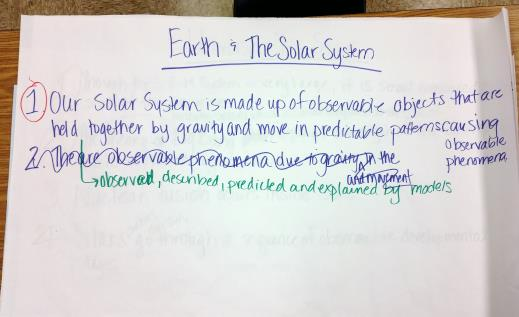 Earth & The Solar System
1 Our Solar System is made up of observable objects that are
held together by gravity and move in predictable patterns causing
observable
phenomena
2. The are observable phenomena due to gravity in the
and movement
→ observed, described, predicted and explained by models